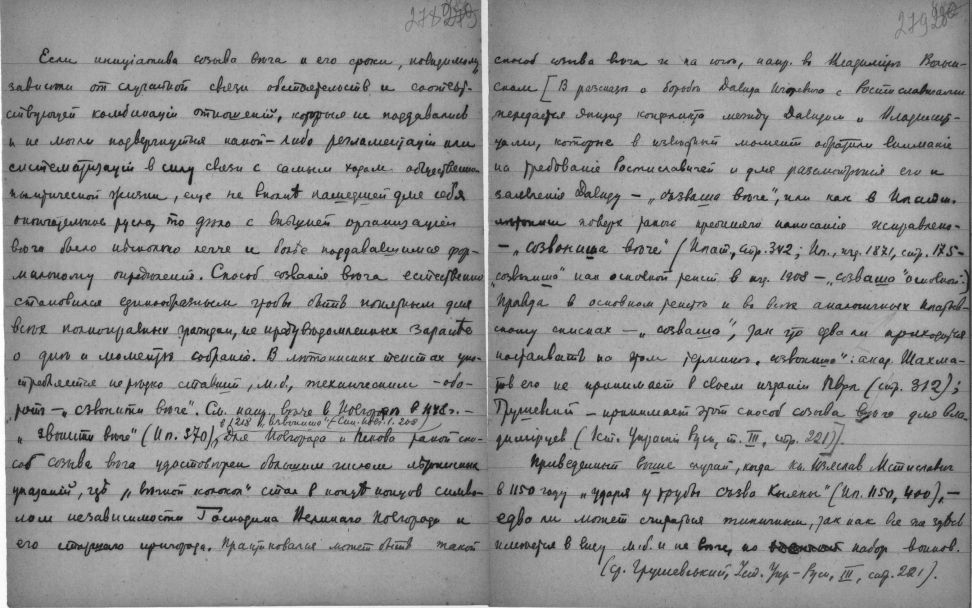 278
Если инициатива созыва веча и его сроки, повидимому
зависели от случайной связи обстоятельств и соответ-
ствующей комбинации отношений, которые не поддавались
и не могли подвергнуться какой-либо регламентации или
систематизации в силу связи с самым ходом общественно
политической жизни, еще не вполнѣ нашедшей для себя
окончательное русло, то дѣло с внѣшней организацией
веча было нѣсколько легче и болѣе поддавалшимся фор-
мальному определению. Способ созвания веча естественно
становился единообразным чтобы быть понятным для
всѣх полноправных граждан, не предуведомленных заранѣе
о днѣ и моментѣ собрания. В лѣтописных текстах упо-
требляется нерѣдко ставший, м.б., техническим - обо-
рот - „съзвонити вѣче". См. напр. вѣче в Новгородѣ в 1148 г. -
„звонити вѣче" (Ип. 370), Для Новгорода и Пскова такой спо-
соб созыва веча удостовѣрен большим числом лѣтописных
указаний, гдѣ „вѣчной колокол" стал в концѣ концов симво-
лом независимости Господина Великаго Новгорода и
его старшаго пригорода. Практиковался может быть такой
279
способ созыва веча и на югѣ, напр. во Владимирѣ Волын-
ском [В рассказѣ о борьбѣ Давида Игоревича с Ростиславичами
передается эпизод конфликта между Давидом и Владимир-
цами, которые в извѣстный момент обратили внимание
на требование Ростиславичей и для разсмотрѣния его и
заявления Давиду - „съзваша вѣче", или как в Ипат.
поверх ранѣе прочтеннаго написания исправлено -
- „созвониша вѣче" (Ипат., стр. 342; Ип., изд. 1871, стр. 175 -
„созвониша" как основной текст в изд. 1908 - „созваша" основной.)
Правда в основном текстѣ и во всѣх аналогичных Ипатьев-
скому списках - „созваша", так что едва ли приходится
настаивать на этом терминѣ „созвониша": акад. Шахма-
тов его не принимает в своем издании Пврл (стр. 312);
Грушевский - принимает этот способ созыва вѣче для Вла-
димирцев (Ист. Украини Руси, т. III, стр. 221)].
Приведенный выше случай, когда кн. Изяслав Мстиславич
в 1150 году „ударя у трубы съзва Кыяны" (Ип. 1150, 400), -
едва ли может считаться типичным, так как все же здѣсь
имѣется в виду м.б. и не вече, но набор воинов.
(ср. Грушевський, Іст. Укр-Руси, III, стр. 221).